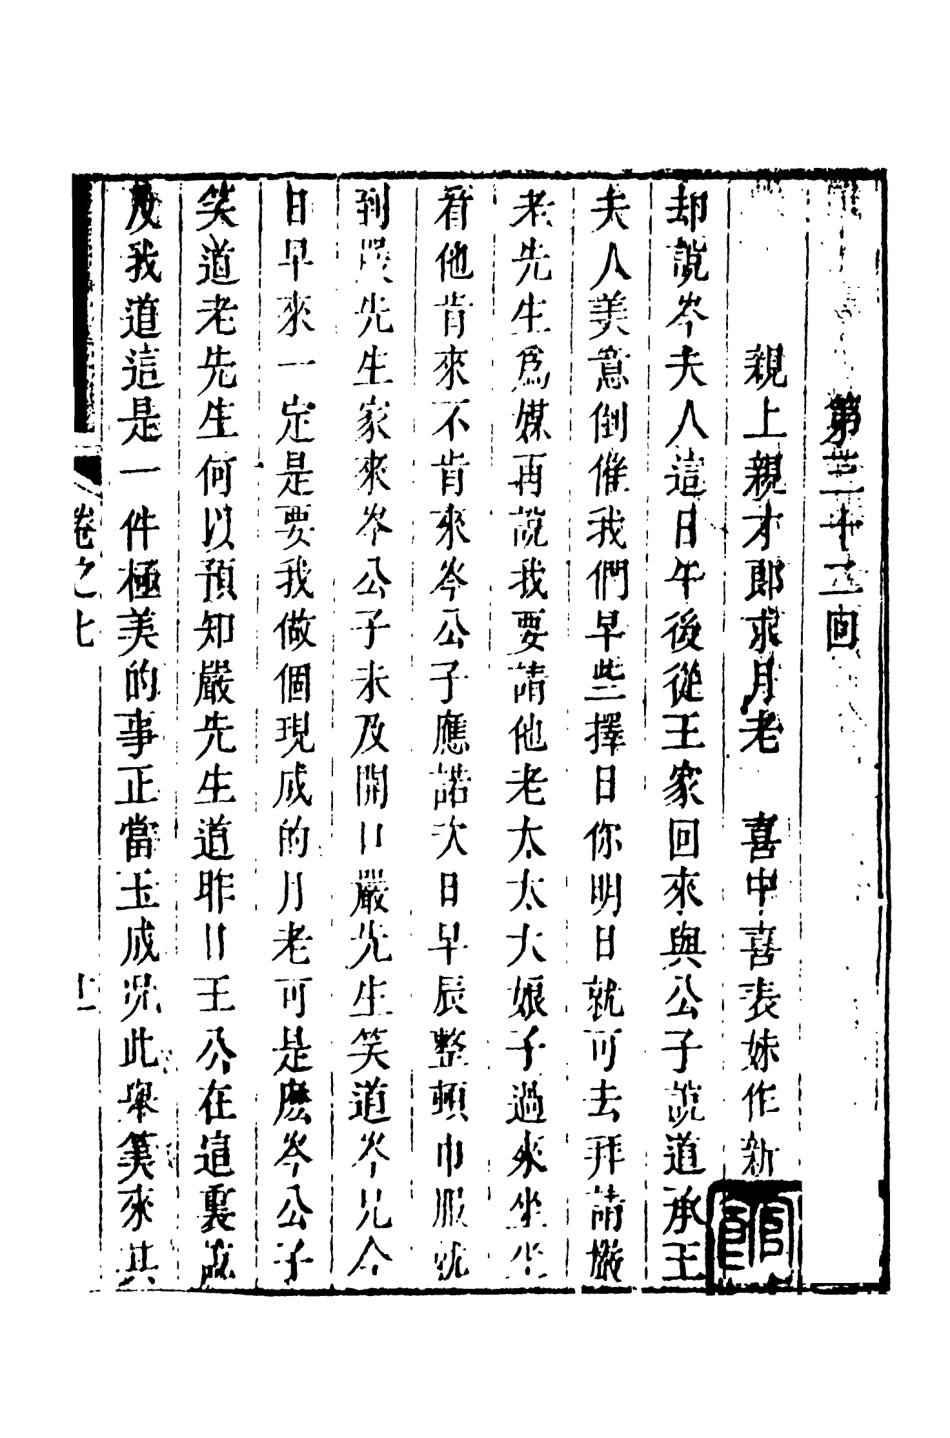 第三十二回
親上親才郎求月老　喜中喜表妹作新
却說岑夫人這日午後從王家回來與公子說道承王
夫人美意倒催我們早些擇日你明日就可去拜請嚴
老先生爲媒再說我要請他老太太大娘子過來坐坐
看他肯來不肯來岑公子應諾次日早辰整頓巾服就
到嚴先生家來岑公子未及開口嚴先生笑道岑兄今
日早來一定是要我做個現成的月老可是麽岑公子
笑道老先生何以預知嚴先生道昨日王公在這裏說
及我道這是一件極美的事正當玉成况此舉算來其
卷之七